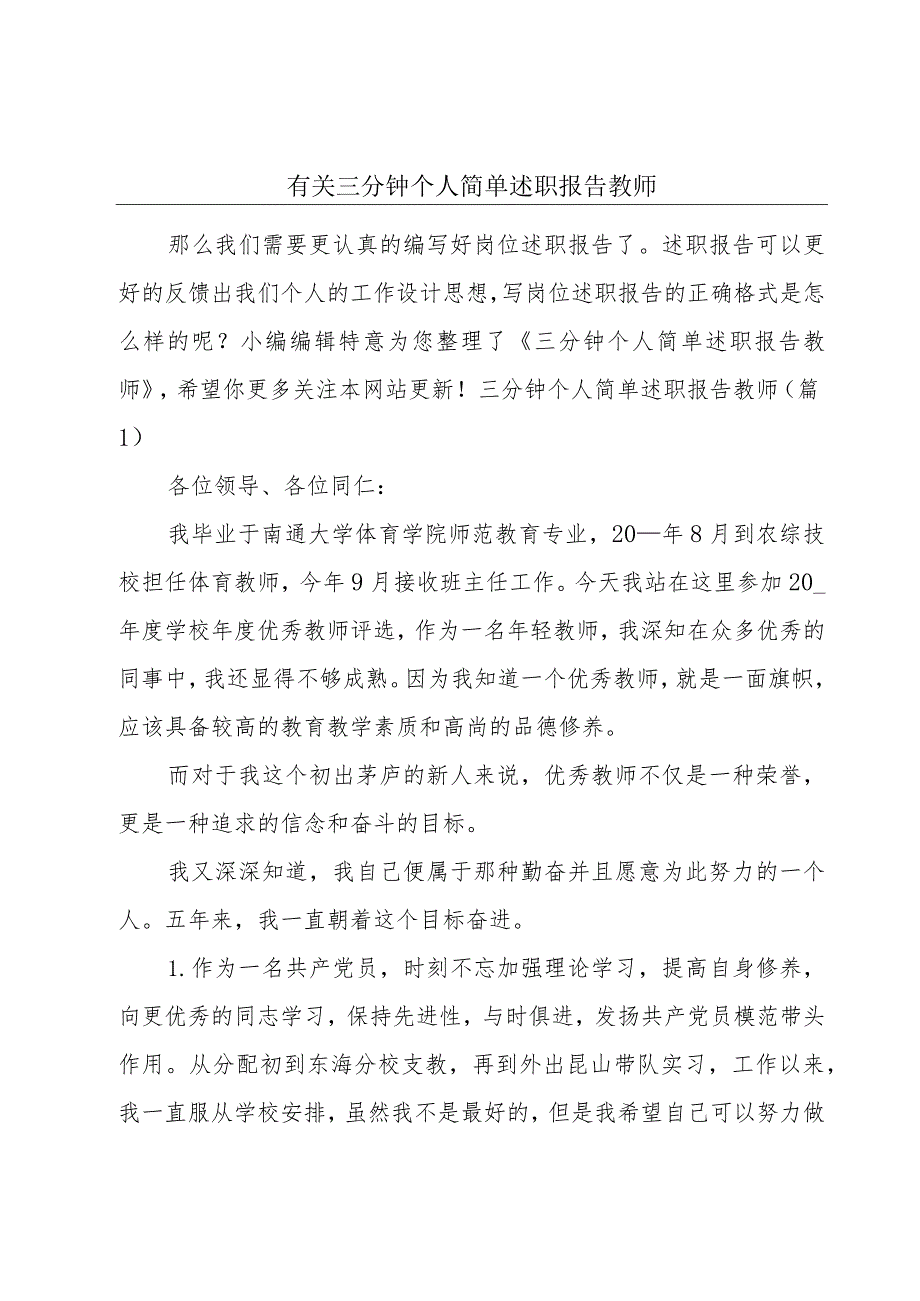 有关三分钟个人简单述职报告教师
那么我们需要更认真的编写好岗位述职报告了。述职报告可以更
好的反馈出我们个人的工作设计思想,写岗位述职报告的正确格式是怎
么样的呢?小编编辑特意为您整理了《三分钟个人简单述职报告教
师》,希望你更多关注本网站更新!三分钟个人简单述职报告教师(篇
1)
各位领导、各位同仁:
我毕业于南通大学体育学院师范教育专业,20—年8月到农综技
校担任体育教师,今年9月接收班主任工作。今天我站在这里参加20_
年度学校年度优秀教师评选,作为一名年轻教师,我深知在众多优秀的
同事中,我还显得不够成熟。因为我知道一个优秀教师,就是一面旗帜,
应该具备较高的教育教学素质和高尚的品德修养。
而对于我这个初出茅庐的新人来说,优秀教师不仅是一种荣誉,
更是一种追求的信念和奋斗的目标。
我又深深知道,我自己便属于那种勤奋并且愿意为此努力的一个
人。五年来,我一直朝着这个目标奋进。
1.作为一名共产党员,时刻不忘加强理论学习,提高自身修养,
向更优秀的同志学习,保持先进性,与时俱进,发扬共产党员模范带头
作用。从分配初到东海分校支教,再到外出昆山带队实习,工作以来,
我一直服从学校安排,虽然我不是最好的,但是我希望自己可以努力做